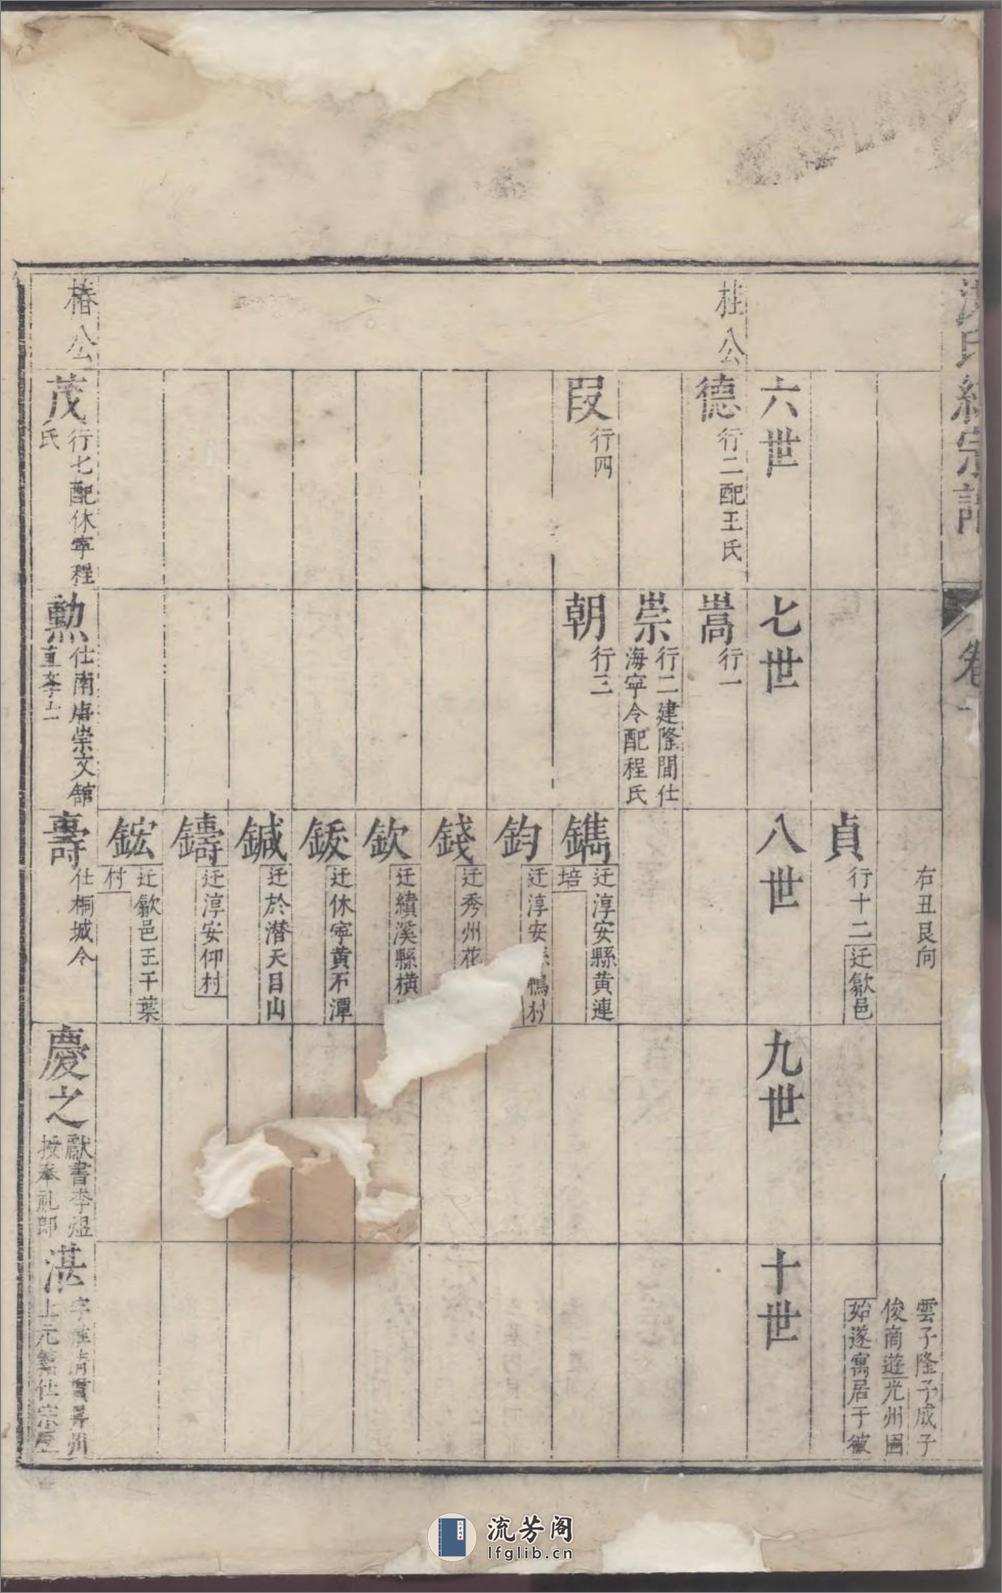 氏統宗譜
卷
右丑艮向
雲子隆子成子
俊商遊光州固
始遂寓居于徽
貞
行十二迁歙邑
六世
七世
八世
九世
十世
柱公
德
行二配王氏
嵩
行一
崇
行二建隆間仕
海寧令配程氏
叚
行四
朝
行三
鐫
迁淳安縣黃連
培
鈞
迁淳安 鴨村
錢
迁秀州花
欽
迁績溪縣橫
鍰
迁休寧黃石潭
鍼
迁於潛天目山
鑄
迁淳安仰村
鋐
迁歙邑王干葉
村
椿公
茂
行七配休寧程
氏
勲
仕南唐崇文舘
直學士
壽
仕桐城令
慶之
獻書李煜
授奉礼郎
湛
字
昇州
上元 仕宗
流芳阁
lfglib.cn